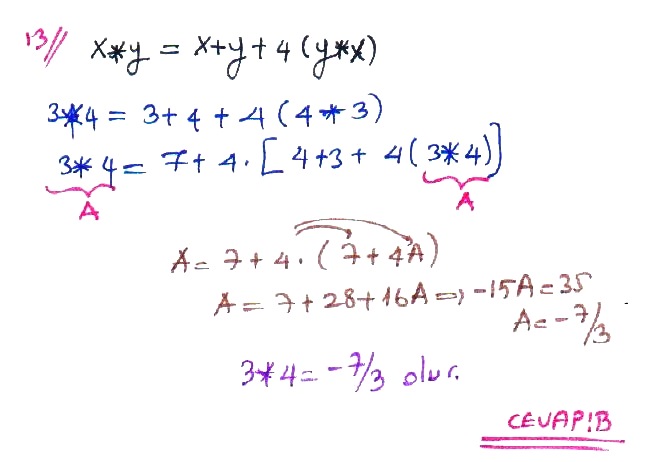 13// x*y = x+y+4(y*x)
3*4 = 3+4+4(4*3)
3*4 = 7+4.[4+3+4(3*4)]
A A
A = 7+4.(7+4A)
A = 7+28+16A => -15A=35
A = -7/3
3*4 = -7/3 olur.
CEVAP!B